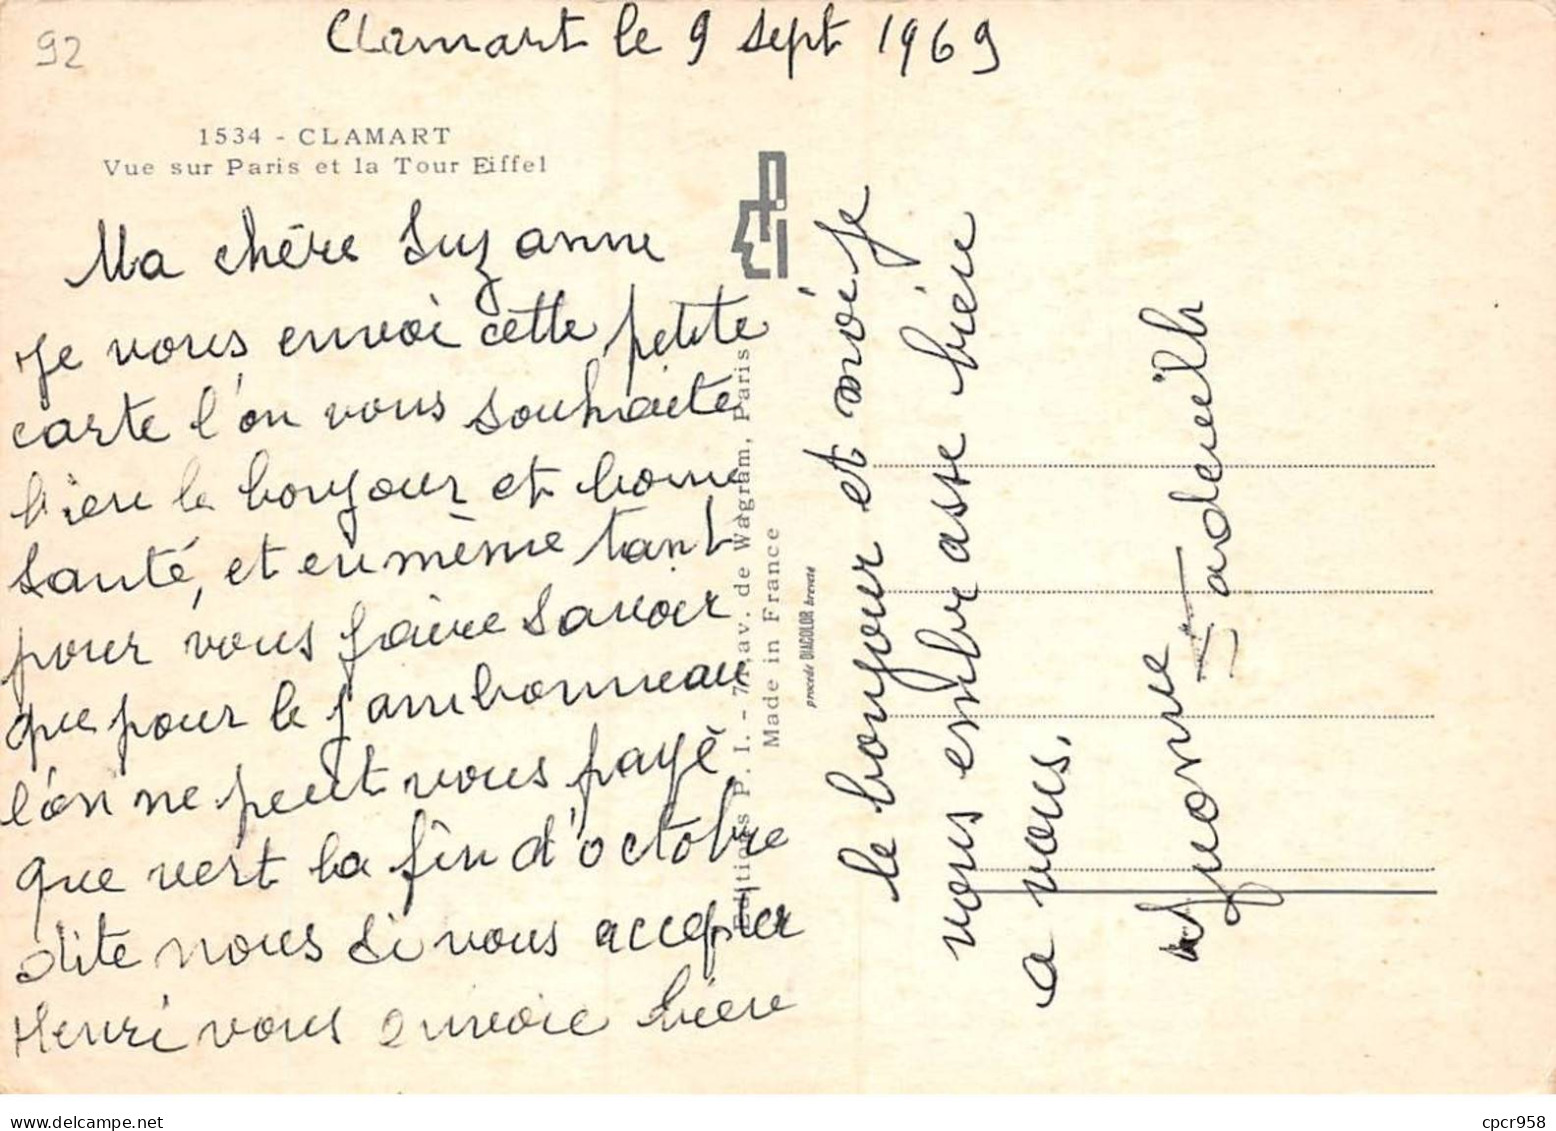 92
Clamart le 9 sept 1969
1534 - CLAMART
Vue sur Paris et la Tour Eiffel
Ma chère Suzanne
Je vous envoi cette petite
carte l'on vous souhaite
bien le bonjour et bonne
santé, et en même tant
pour vous faire savoir
que pour le jambonneau
l'on ne peut vous payé
que vert la fin d'octobre
dite nous si vous accepter
Henri vous envoie bien
le bonjour et moi Je
vous embrasse bien
a vous.
Yvonne
Editions P. I. - 71, av. de Wagram, Paris
Made in France
procédé DIACOLOR breveté
www.delcampe.net
cpcr958